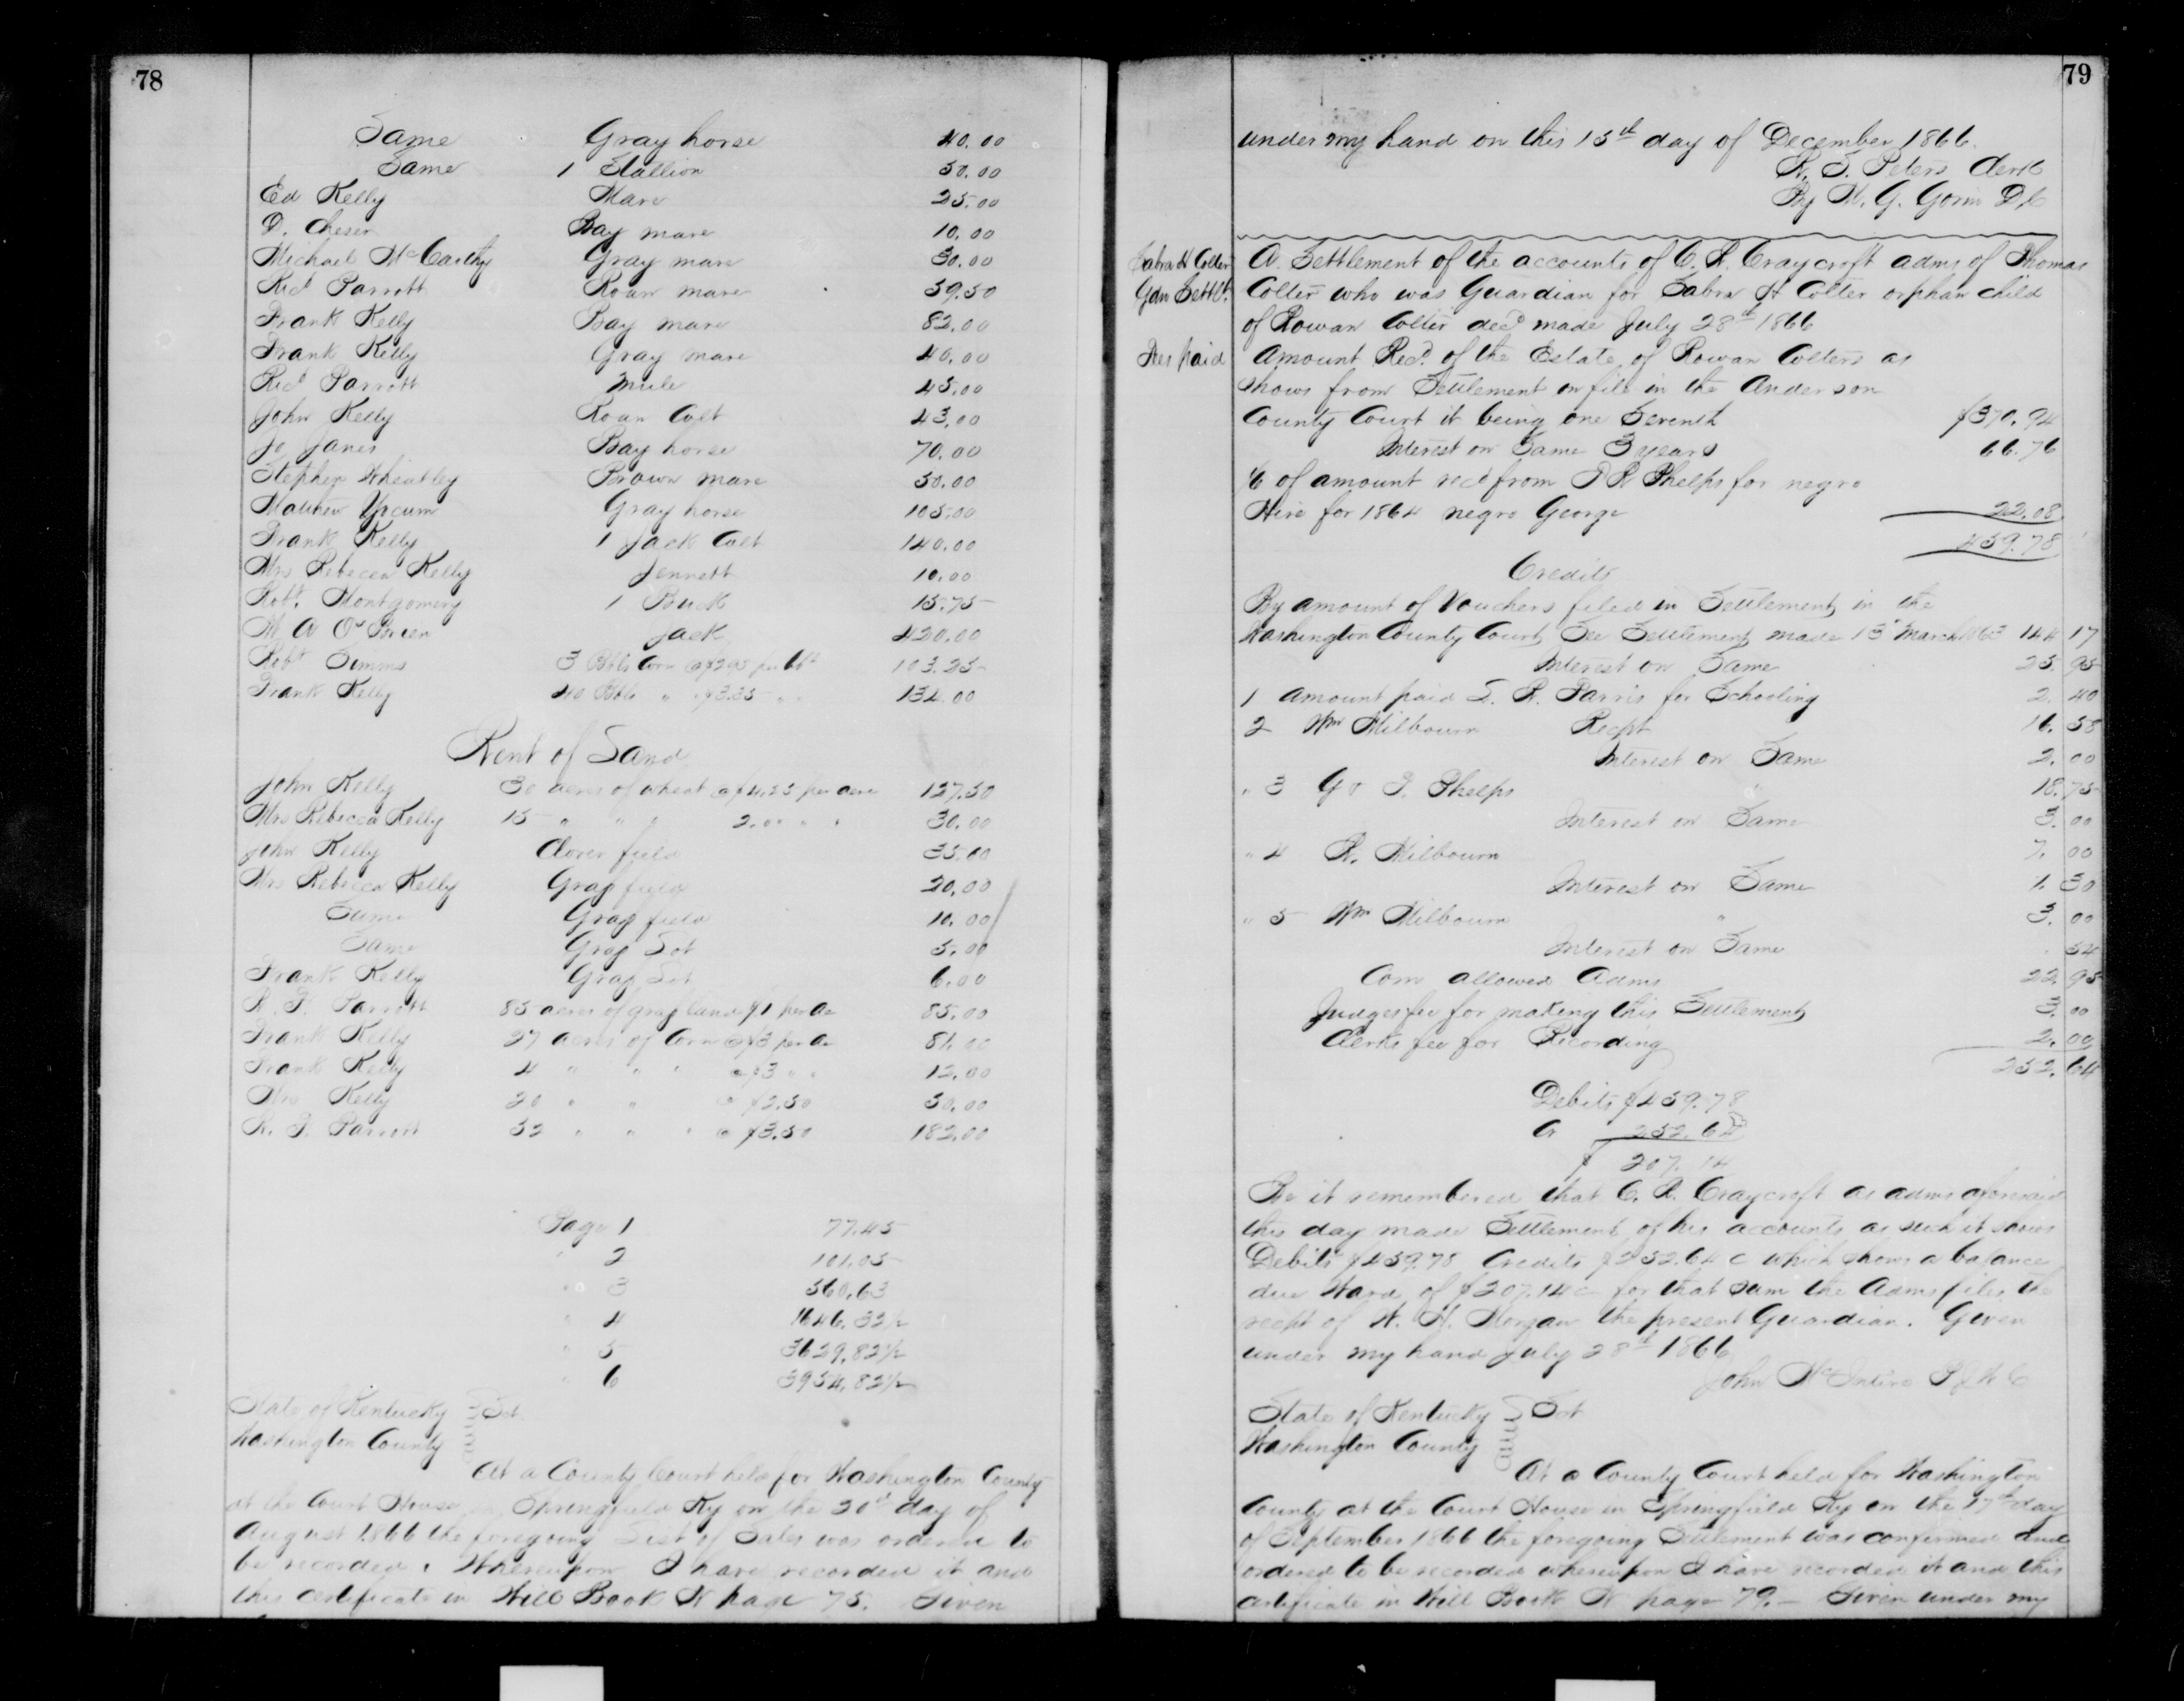 78
Same Gray horse 40.00
Same 1 Stallion 50.00
Ed Kelly Mare 25.00
D. Cheser Bay mare 10.00
Michael McCarthy Gray mare 30.00
Ricd Parrott Roan mare 59.50
Frank Kelly Bay mare 82.00
Frank Kelly Gray mare 40.00
Ricd Parrott Mule 45.00
John Kelly Roan Colt 43.00
Jo Janes Bay horse 70.00
Stephen Wheatley Brown mare 50.00
Mathew Yocum Gray horse 105.00
Frank Kelly 1 Jack Colt 140.00
Mrs Rebecca Kelly Jennett 10.00
Robt. Montgomery 1 Buck 15.75
W. A O'Brien Jack 420.00
Robt Simms Bbls Corn @ $2.95 per bbl 103.25
Frank Kelly 40 Bbls " " $3.35 " " 134.00
Rent of Land
John Kelly 30 acres of wheat @ $4.25 per acre 127.50
Mrs Rebecca Kelly 15 " " " 2.00 " " 30.00
John Kelly Clover field 35.00
Mrs Rebecca Kelly Grass field 20.00
Same Grass field 10.00
Same Grass Lot 5.00
Frank Kelly Grass Lot 6.00
R. F. Parrott 85 acres of grass land $1 per a 85.00
Frank Kelly 27 acres of Corn @ $3 per a 81.00
Frank Kelly 4 " " " @ $3 " " 12.00
Mrs Kelly 20 " " @ $2.50 50.00
R. F. Parrott 52 " " " @ $3.50 182.00
Page 1 77.45
" 2 101.05
" 3 560.63
" 4 1646.32½
" 5 3629.82½
" 6 3954.82½
State of Kentucky } Sct.
Washington County
At a County Court held for Washington County
at the Court House in Springfield Ky on the 20th day of
August 1866 the foregoing List of Sales was ordered to
be recorded. Whereupon I have recorded it and
this certificate in Will Book N page 75. Given
79
under my hand on this 15th day of December 1866.
W. F. Peters Clerk
By W. G. Gorin D.C
Sabra H Colter
Gdn Settlt.
A Settlement of the accounts of C. R. Craycroft adms of Thomas
Colter who was Guardian for Sabra H Colter orphan child
of Rowan Colter decd made July 28th 1866
Fees paid
Amount Recd. of the Estate of Rowan Colters as
shows from Settlement on file in the Anderson
County Court it being one Seventh $370.94
Interest on Same 3 years 66.76
1/6 of amount recd from Phelps for negro
Hire for 1864 negro George 22.08
459.78
Credits
By amount of Vouchers filed in Settlement in the
Washington County Court See Settlement made 15 March 1863 144 17
Interest on Same 25.95
1 amount paid S. R. Parris for Schooling 2.40
2 Wm Milbourn Recpt 16.58
Interest on Same 2.00
" 3 Phelps " 18.75
Interest on Same 3.00
" 4 R. Milbourn 7.00
Interest on Same 1.30
" 5 Wm Milbourn " 3.00
Interest on Same .54
Com allowed Adms 22.95
Judges fee for making this Settlement 3.00
Clerks fee for Recording 2.00
252.64
Debits $459.78
Cr 252.64
$ 207.14
Be it remembered that C. R. Craycroft as adms aforesaid
this day made Settlement of his accounts as such it shows
Debits $459.78 Credits $252.64 c which shows a balance
due Ward of $207.14 c for that sum the Adms files the
recpt of W. H. Morgan the present Guardian. Given
under my hand July 28th 1866
John McIntire P J W C
State of Kentucky } Sct
Washington County
At a County Court held for Washington
County at the Court House in Springfield Ky on the 17th day
of September 1866 the foregoing Settlement was confirmed and
ordered to be recorded whereupon I have recorded it and this
certificate in Will Book N page 79. — Given under my